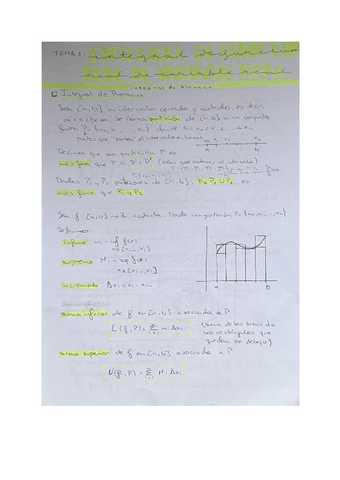 TEMA 1
Integral de
de variable real
Integral de Riemann
Sea [a,b] un intervalo cerrado y acotado, es decir
-∞<a<b<∞. Se llama partición de [a,b] a un conjunto
finito P={x₀, ..., xₙ} donde a=x₀<x₁<...<xₙ
Decimos que una partición P' es
más fina que P si P⊂P'
Dadas P₁ y P₂ particiones de [a,b], P=P₁∪P₂ es
más fina que P₁ y P₂
Sea f: [a,b]→ℝ acotada. Dada una partición P={x₀,x₁,...,xₙ}
Definimos:
ínfimo mᵢ = inf f(x)
x∈[xᵢ₋₁,xᵢ]
supremo Mᵢ = sup f(x)
x∈[xᵢ₋₁,xᵢ]
incremento Δxᵢ = xᵢ - xᵢ₋₁
a b
suma inferior de f en [a,b] asociada a P
L(f,P) = Σ mᵢ Δxᵢ
(suma de las áreas de
los rectángulos que
quedan por debajo)
suma superior de f en [a,b] asociada a P
U(f,P) = Σ Mᵢ Δxᵢ